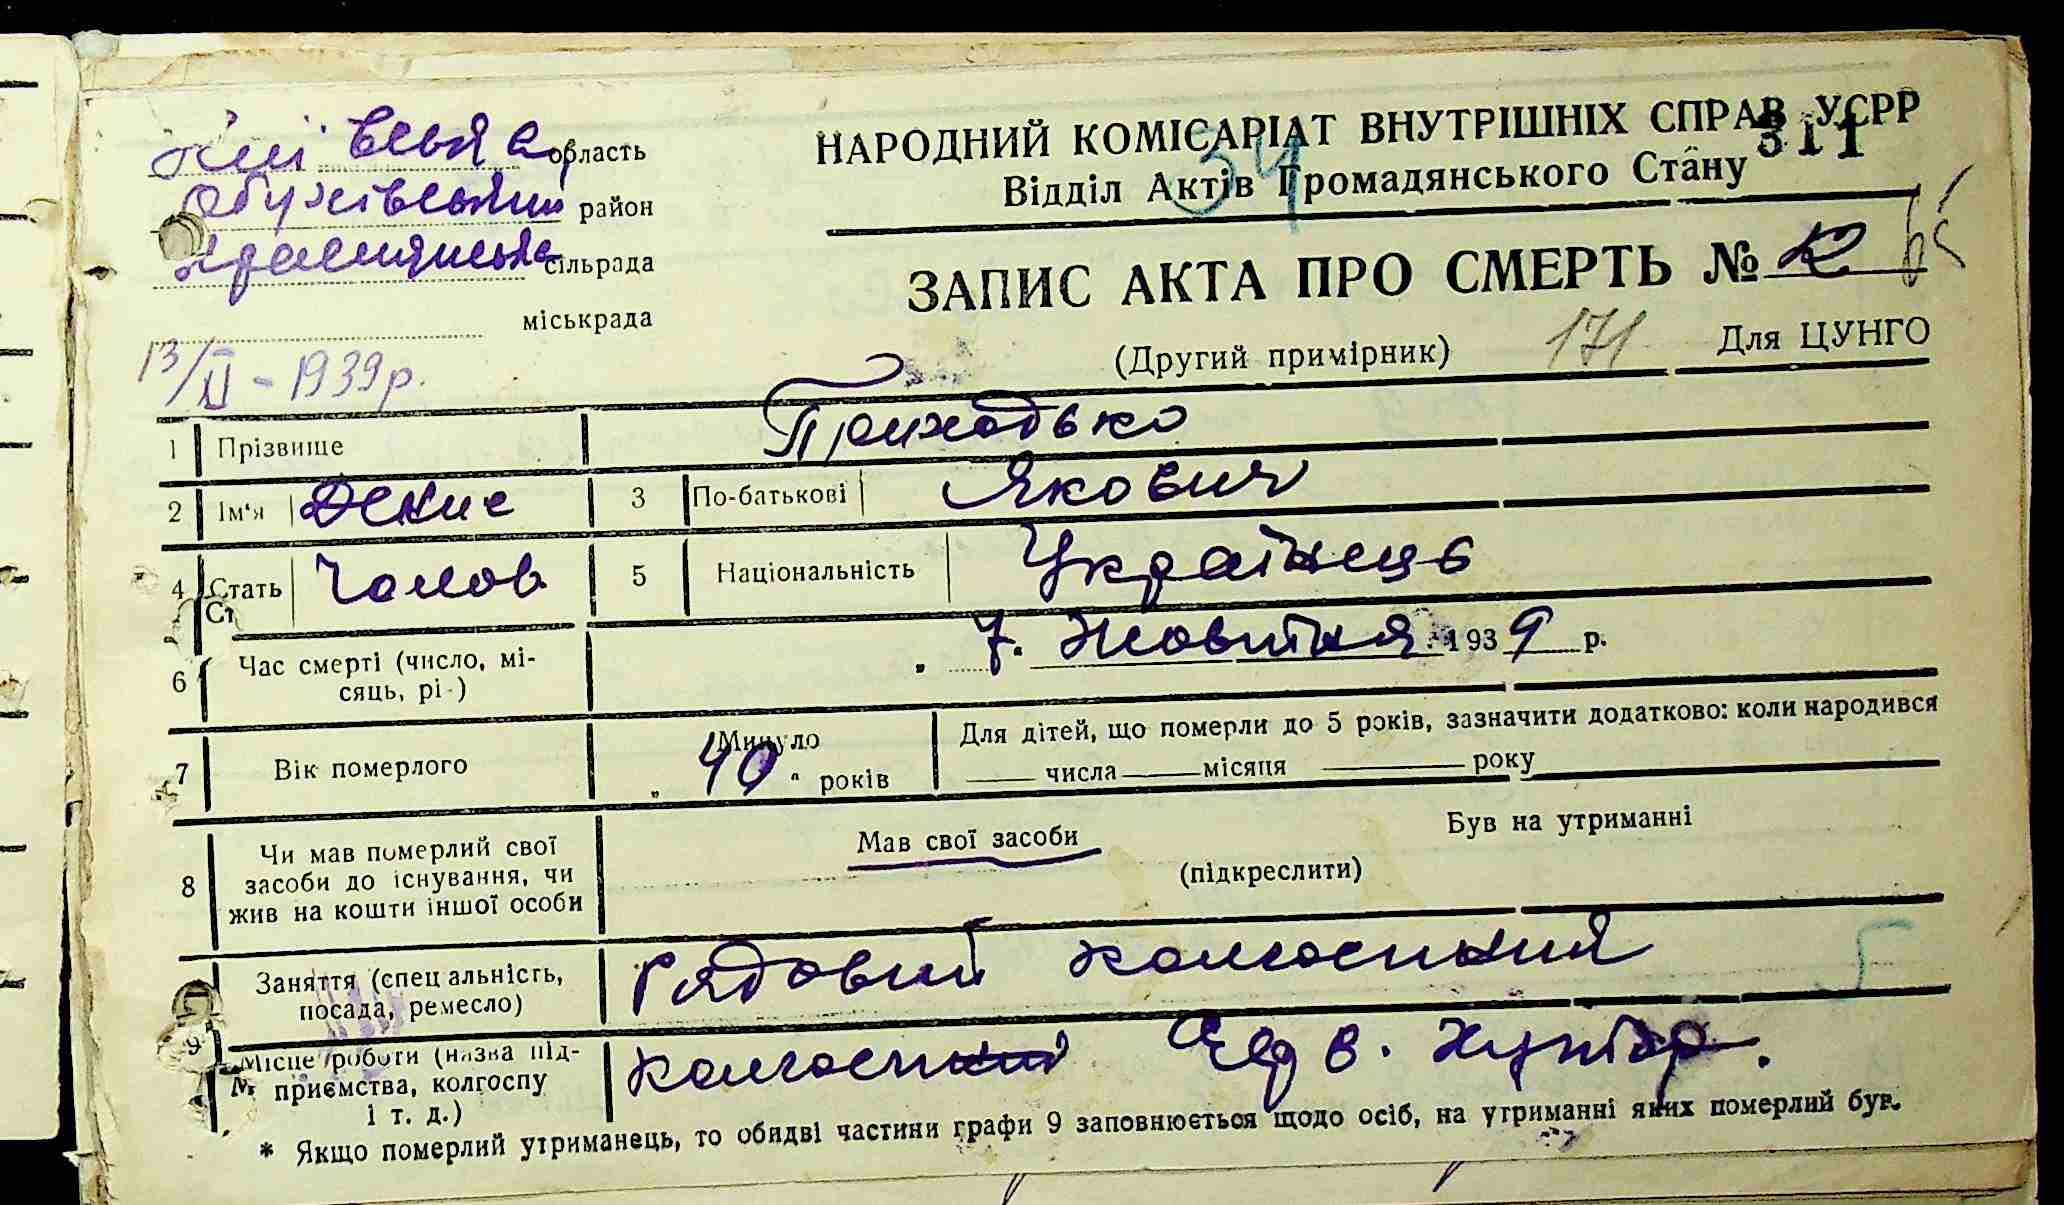 Київська область
Обухівський район
Краснянська сільрада
міськрада
13/II - 1939 р.
НАРОДНИЙ КОМІСАРІАТ ВНУТРІШНІХ СПРАВ УСРР
311
34
Відділ Актів Громадянського Стану
ЗАПИС АКТА ПРО СМЕРТЬ №
(Другий примірник) 171 Для ЦУНГО
1 Прізвище Приходько
2 Ім'я Денис 3 По-батькові Якович
4 Стать Чолов 5 Національність Українець
6 Час смерті (число, мі-
сяць, рі ) 7. Жовтня 1939 р.
7 Вік померлого Минуло „ 40 " років
Для дітей, що померли до 5 років, зазначити додатково: коли народився
числа місяця року
8 Чи мав померлий свої
засоби до існування, чи
жив на кошти іншої особи
Мав свої засоби Був на утриманні
(підкреслити)
9 Заняття (спец альність,
посада, ремесло) Рядовий колгоспний
5
Місце роботи (назва під-
приємства, колгоспу
і т. д.)
колгоспний
* Якщо померлий утриманець, то обидві частини графи 9 заповнюється щодо осіб, на утриманні яких померлий був.